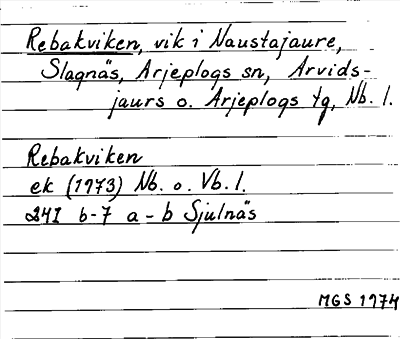 Rebakviken, vik i Naustajaure,
Slagnäs, Arjeplogs sn, Arvids-
jaurs o. Arjeplogs tg, Nb. l.
Rebakviken
ek (1973) Nb. o. Vb. l.
24I 6-7 a-b Sjulnäs
MGS 1974